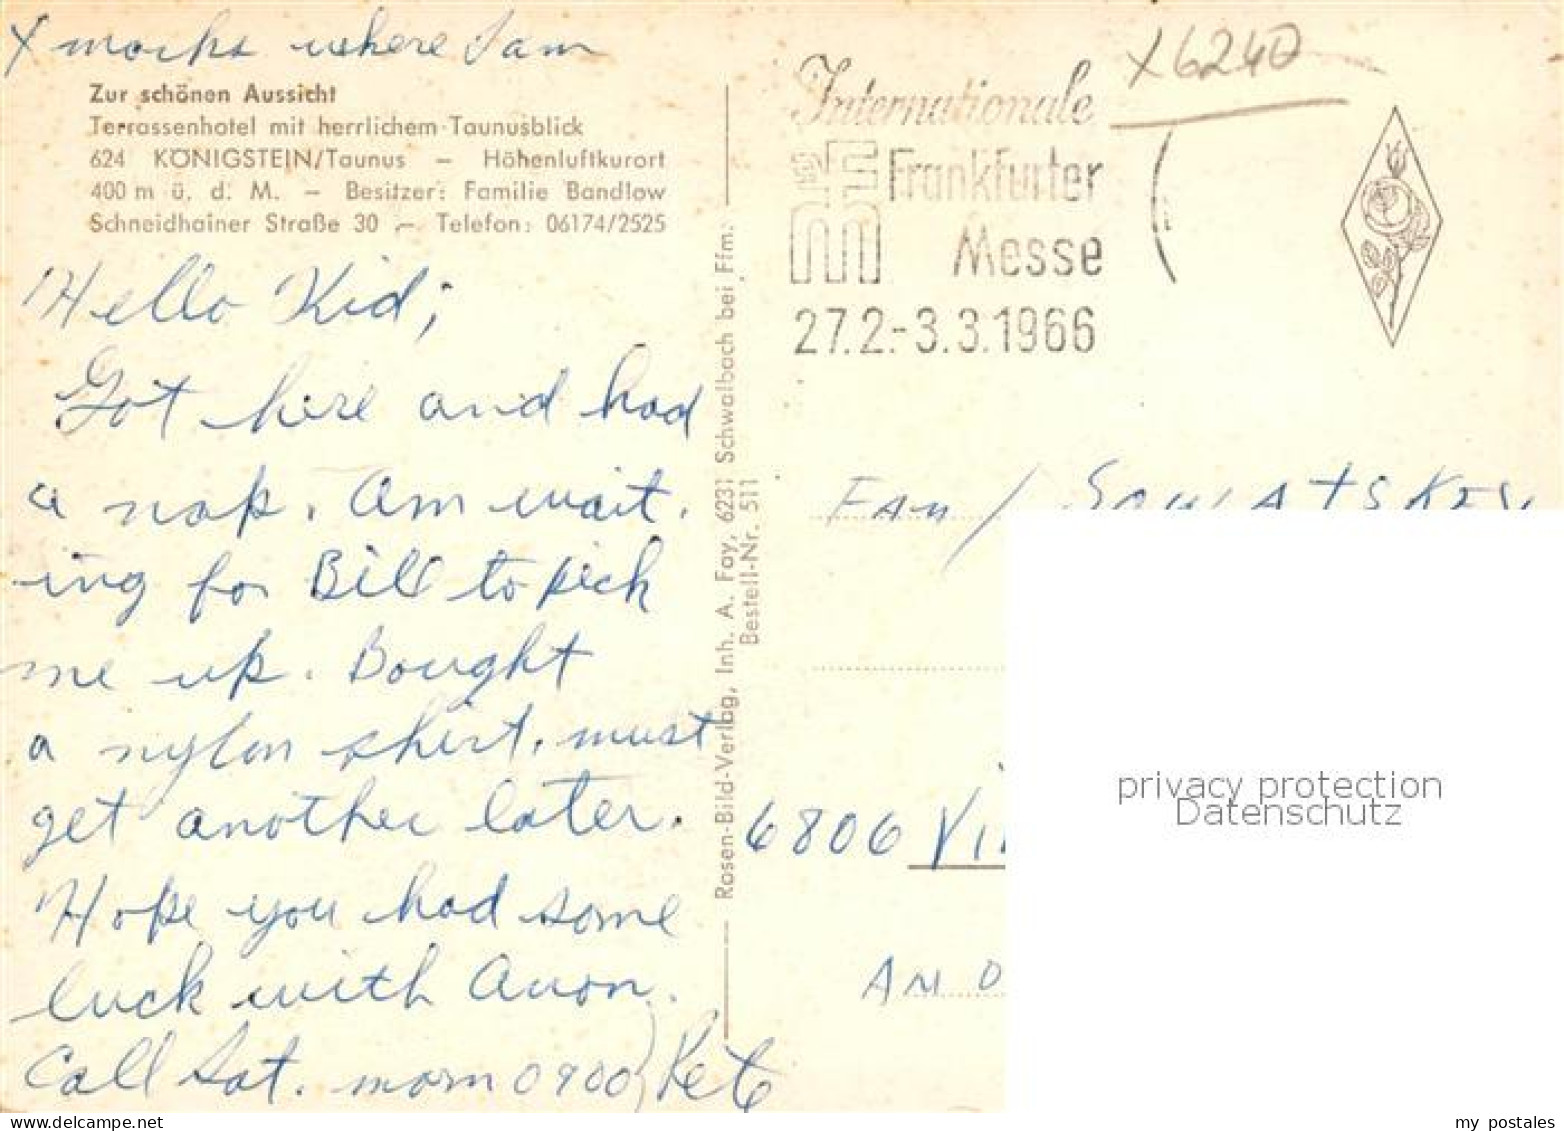 X marks where I am
Zur schönen Aussicht
Terrassenhotel mit herrlichem Taunusblick
624 KÖNIGSTEIN/Taunus – Höhenluftkurort
400 m ü. d. M. – Besitzer: Familie Bandlow
Schneidhainer Straße 30 – Telefon: 06174/2525
Hello Kid;
Got here and had
a nap. Am wait.
ing for Bill to pick
me up. Bought
a nylon shirt. must
get another later.
Hope you had some
luck with Avon.
Call Sat. morn 0900 Pete
Rosen-Bild-Verlag, Inh. A. Fay, 6231 Schwalbach bei Ffm.
Bestell-Nr. 511
X6240
Internationale
Frankfurter
Messe
27.2.-3.3.1966
FAM /
6806
AM
privacy protection
Datenschutz
my postales